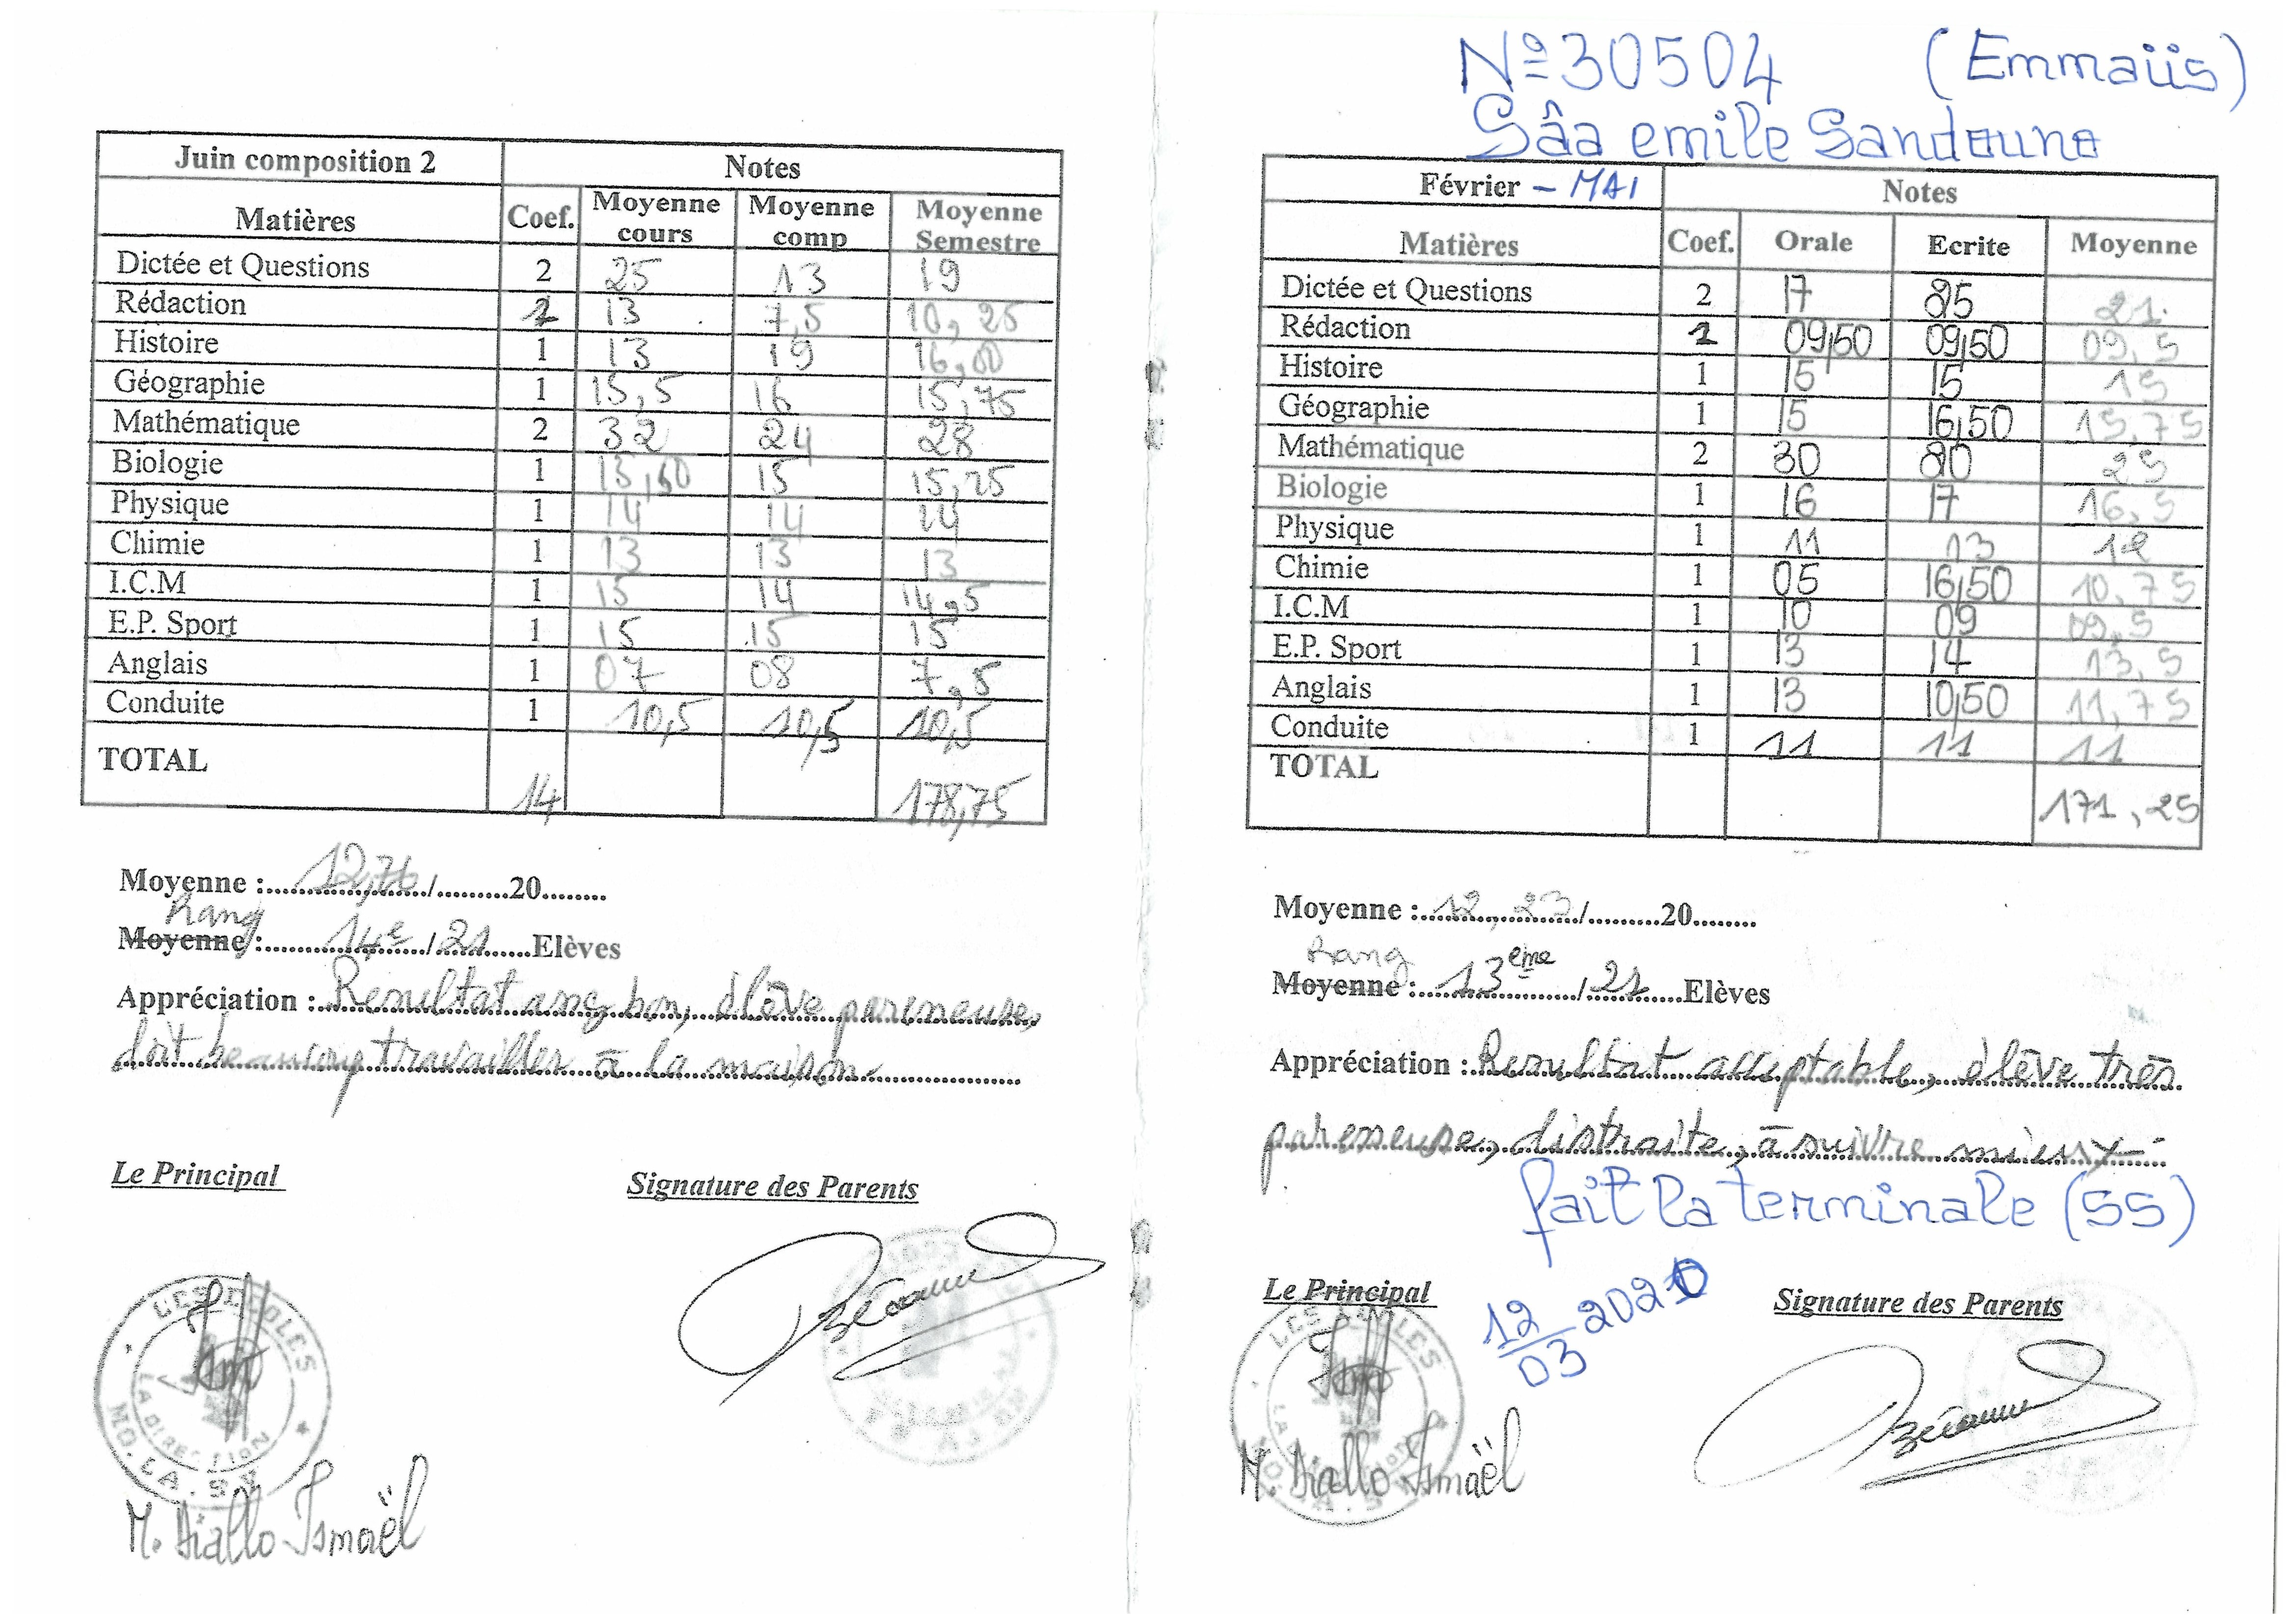 Juin composition 2 Notes
Matières Coef. Moyenne cours Moyenne comp Moyenne Semestre
Dictée et Questions 2 25 13 19
Rédaction 1 13 7,5 10,25
Histoire 1 13 19 16,00
Géographie 1 15,5 16 15,75
Mathématique 2 32 24 28
Biologie 1 15,50 15 15,25
Physique 1 14 14 14
Chimie 1 13 13 13
I.C.M 1 15 14 14,5
E.P. Sport 1 15 15 15
Anglais 1 07 08 7,5
Conduite 1 10,5 10,5 10,5
TOTAL 14 178,75
Moyenne : 12,76 / 20
Rang
Moyenne : 14e / 21 Elèves
Appréciation : Resultat assez bon, élève paresseuse,
doit beaucoup travailler à la maison
Le Principal
Signature des Parents
LES ECOLES
LA DIRECTION
M. Diallo Ismaël
N° 30504 (Emmaüs)
Sâa emile Sandouno
Février - MAI Notes
Matières Coef. Orale Ecrite Moyenne
Dictée et Questions 2 17 25 21
Rédaction 1 09,50 09,50 09,5
Histoire 1 15 15 15
Géographie 1 15 16,50 15,75
Mathématique 2 30 20 25
Biologie 1 16 17 16,5
Physique 1 11 13 12
Chimie 1 05 16,50 10,75
I.C.M 1 10 09 09,5
E.P. Sport 1 13 14 13,5
Anglais 1 13 10,50 11,75
Conduite 1 11 11 11
TOTAL 171,25
Moyenne : 12,23 / 20
Rang
Moyenne : 13ème / 21 Elèves
Appréciation : Resultat acceptable, élève très
paresseuse, distraite, à suivre mieux
fait la terminale (SS)
Le Principal
12/03 2020
Signature des Parents
LES ECOLES
M. Diallo Ismaël